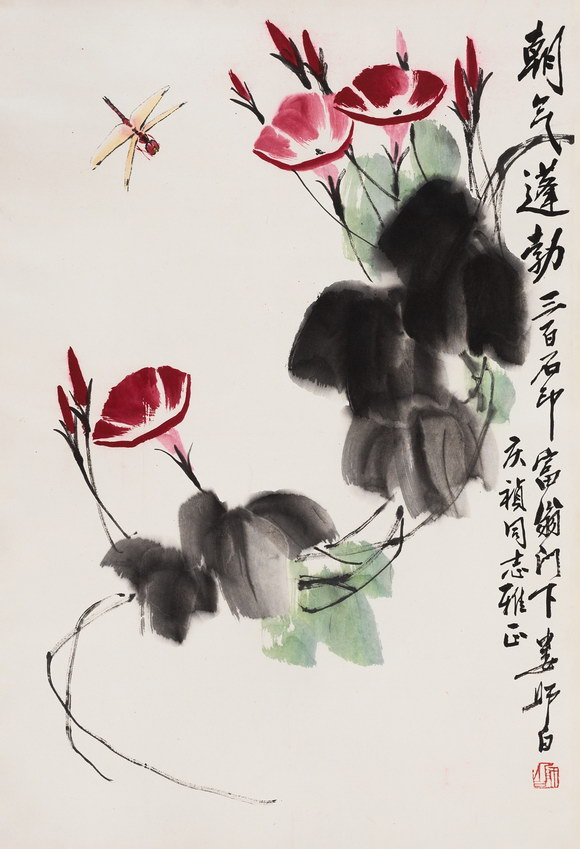 朝气蓬勃 三百石印富翁门下娄师白
庆祯同志雅正